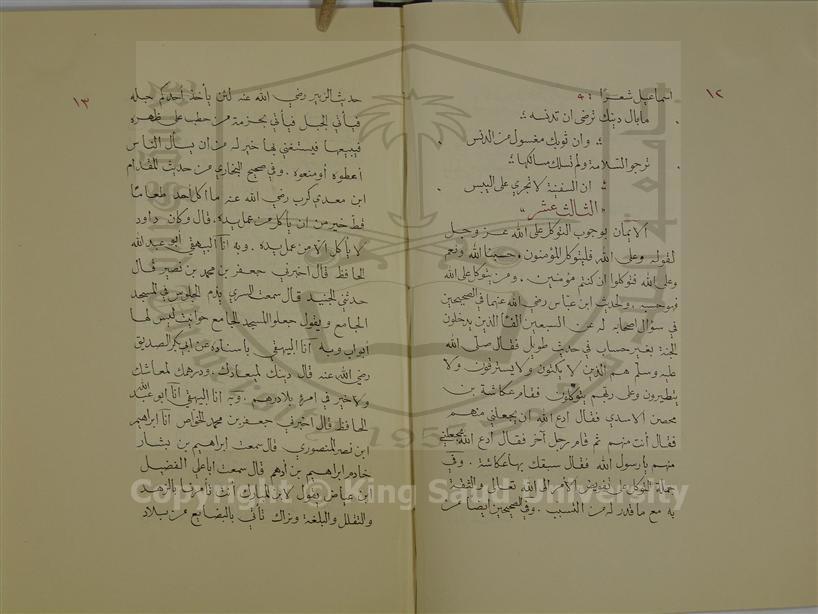 ١٢
اسماعيل شعرًا
مابال دينك ترضى ان تدنسه
وان ثوبك مغسول من الدنس
ترجو السلامة ولم تسلك مسالكها
ان السفينة لا تجري على اليبس
الثالث عشر
الايمان بوجوب التوكل على الله عز وجل
لقوله وعلى الله فليتوكل المؤمنون وحسبنا الله ونعم
وعلى الله فتوكلوا ان كنتم مؤمنين . ومن يتوكل على الله
فهو حسبه . ولحديث ابن عباس رضي الله عنهما في الصحيحين
في سؤال اصحابه له عن السبعين الفا الذين يدخلون
الجنة بغير حساب في حديث طويل فقال صلى الله
عليه وسلم هم الذين لا يكتوون ولا يسترقون ولا
يتطيرون وعلى ربهم يتوكلون فقام عكاشة بن
محصن الاسدي فقال ادع الله ان يجعلني منهم
فقال أنت منهم ثم قام رجل آخر فقال ادع الله يجعلني
منهم يا رسول الله فقال سبقك بها عكاشة . وفي
جملة التوكل على تفويض الأمر الى الله تعالى والثقة
به مع ما قدر له من التسبب . وفي الصحيحين ايضا من
١٣
حديث الزبير رضي الله عنه لئن يأخذ احدكم حبله
فيأتي الجبل فيأتي بحزمة من حطب على ظهره
فيبيعها فيستغني بها خير له من ان يسأل الناس
أعطوه أو منعوه . وفي صحيح البخاري من حديث المقدام
ابن معدي كرب رضي الله عنه ما اكل احد طعامًا
قط خير من ان يأكل من عمل يده . قال وكان داود
لا يأكل الا من عمل يده . وبه انا البيهقي أبو عبد الله
الحافظ قال اخبرني جعفر بن محمد بن نصير قال
حدثني الجنيد قال سمعت السري يذم الجلوس في المسجد
الجامع ويقول جعلوا المسجد الجامع حوانيت ليس لها
أبواب وبه أنا البيهقي باسناده عن أبي بكر الصديق
رضي الله عنه قال دينك لمعادك . ودرهمك لمعاشك
ولا خير في امرئ بلا درهم . وبه أنا البيهقي أنا أبو عبد الله
الحافظ قال اخبرني جعفر بن محمد الخواص أنا ابراهيم
ابن نصر المنصوري قال سمعت ابراهيم بن بشار
خادم ابراهيم بن أدهم قال سمعت ابا علي الفضيل
ابن عياض يقول لابن المبارك أنت تأمرنا بالزهد
والتقلل والبلغة ونراك تأتي بالبضايع من بلاد
Copyright © King Saud University
1957